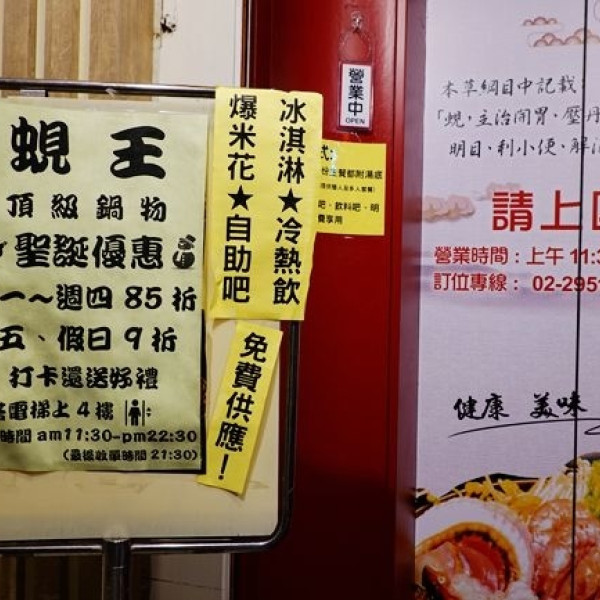 蜆王
頂級鍋物
聖誕優惠
一～週四 85 折
五、假日 9 折
打卡還送好禮
電梯上 4 樓
時間 am11:30-pm22:30
(最後收單時間 21:30)
冰淇淋★冷熱飲
爆米花★自助吧
免費供應！
營業中
OPEN
式：
份主餐都附湯底
吧、飲料吧、明
費享用
本草綱目中記載
「蜆，主治開胃、壓丹
明目、利小便、解
請上
營業時間：上午 11:3
訂位專線： 02-295
健康 美味